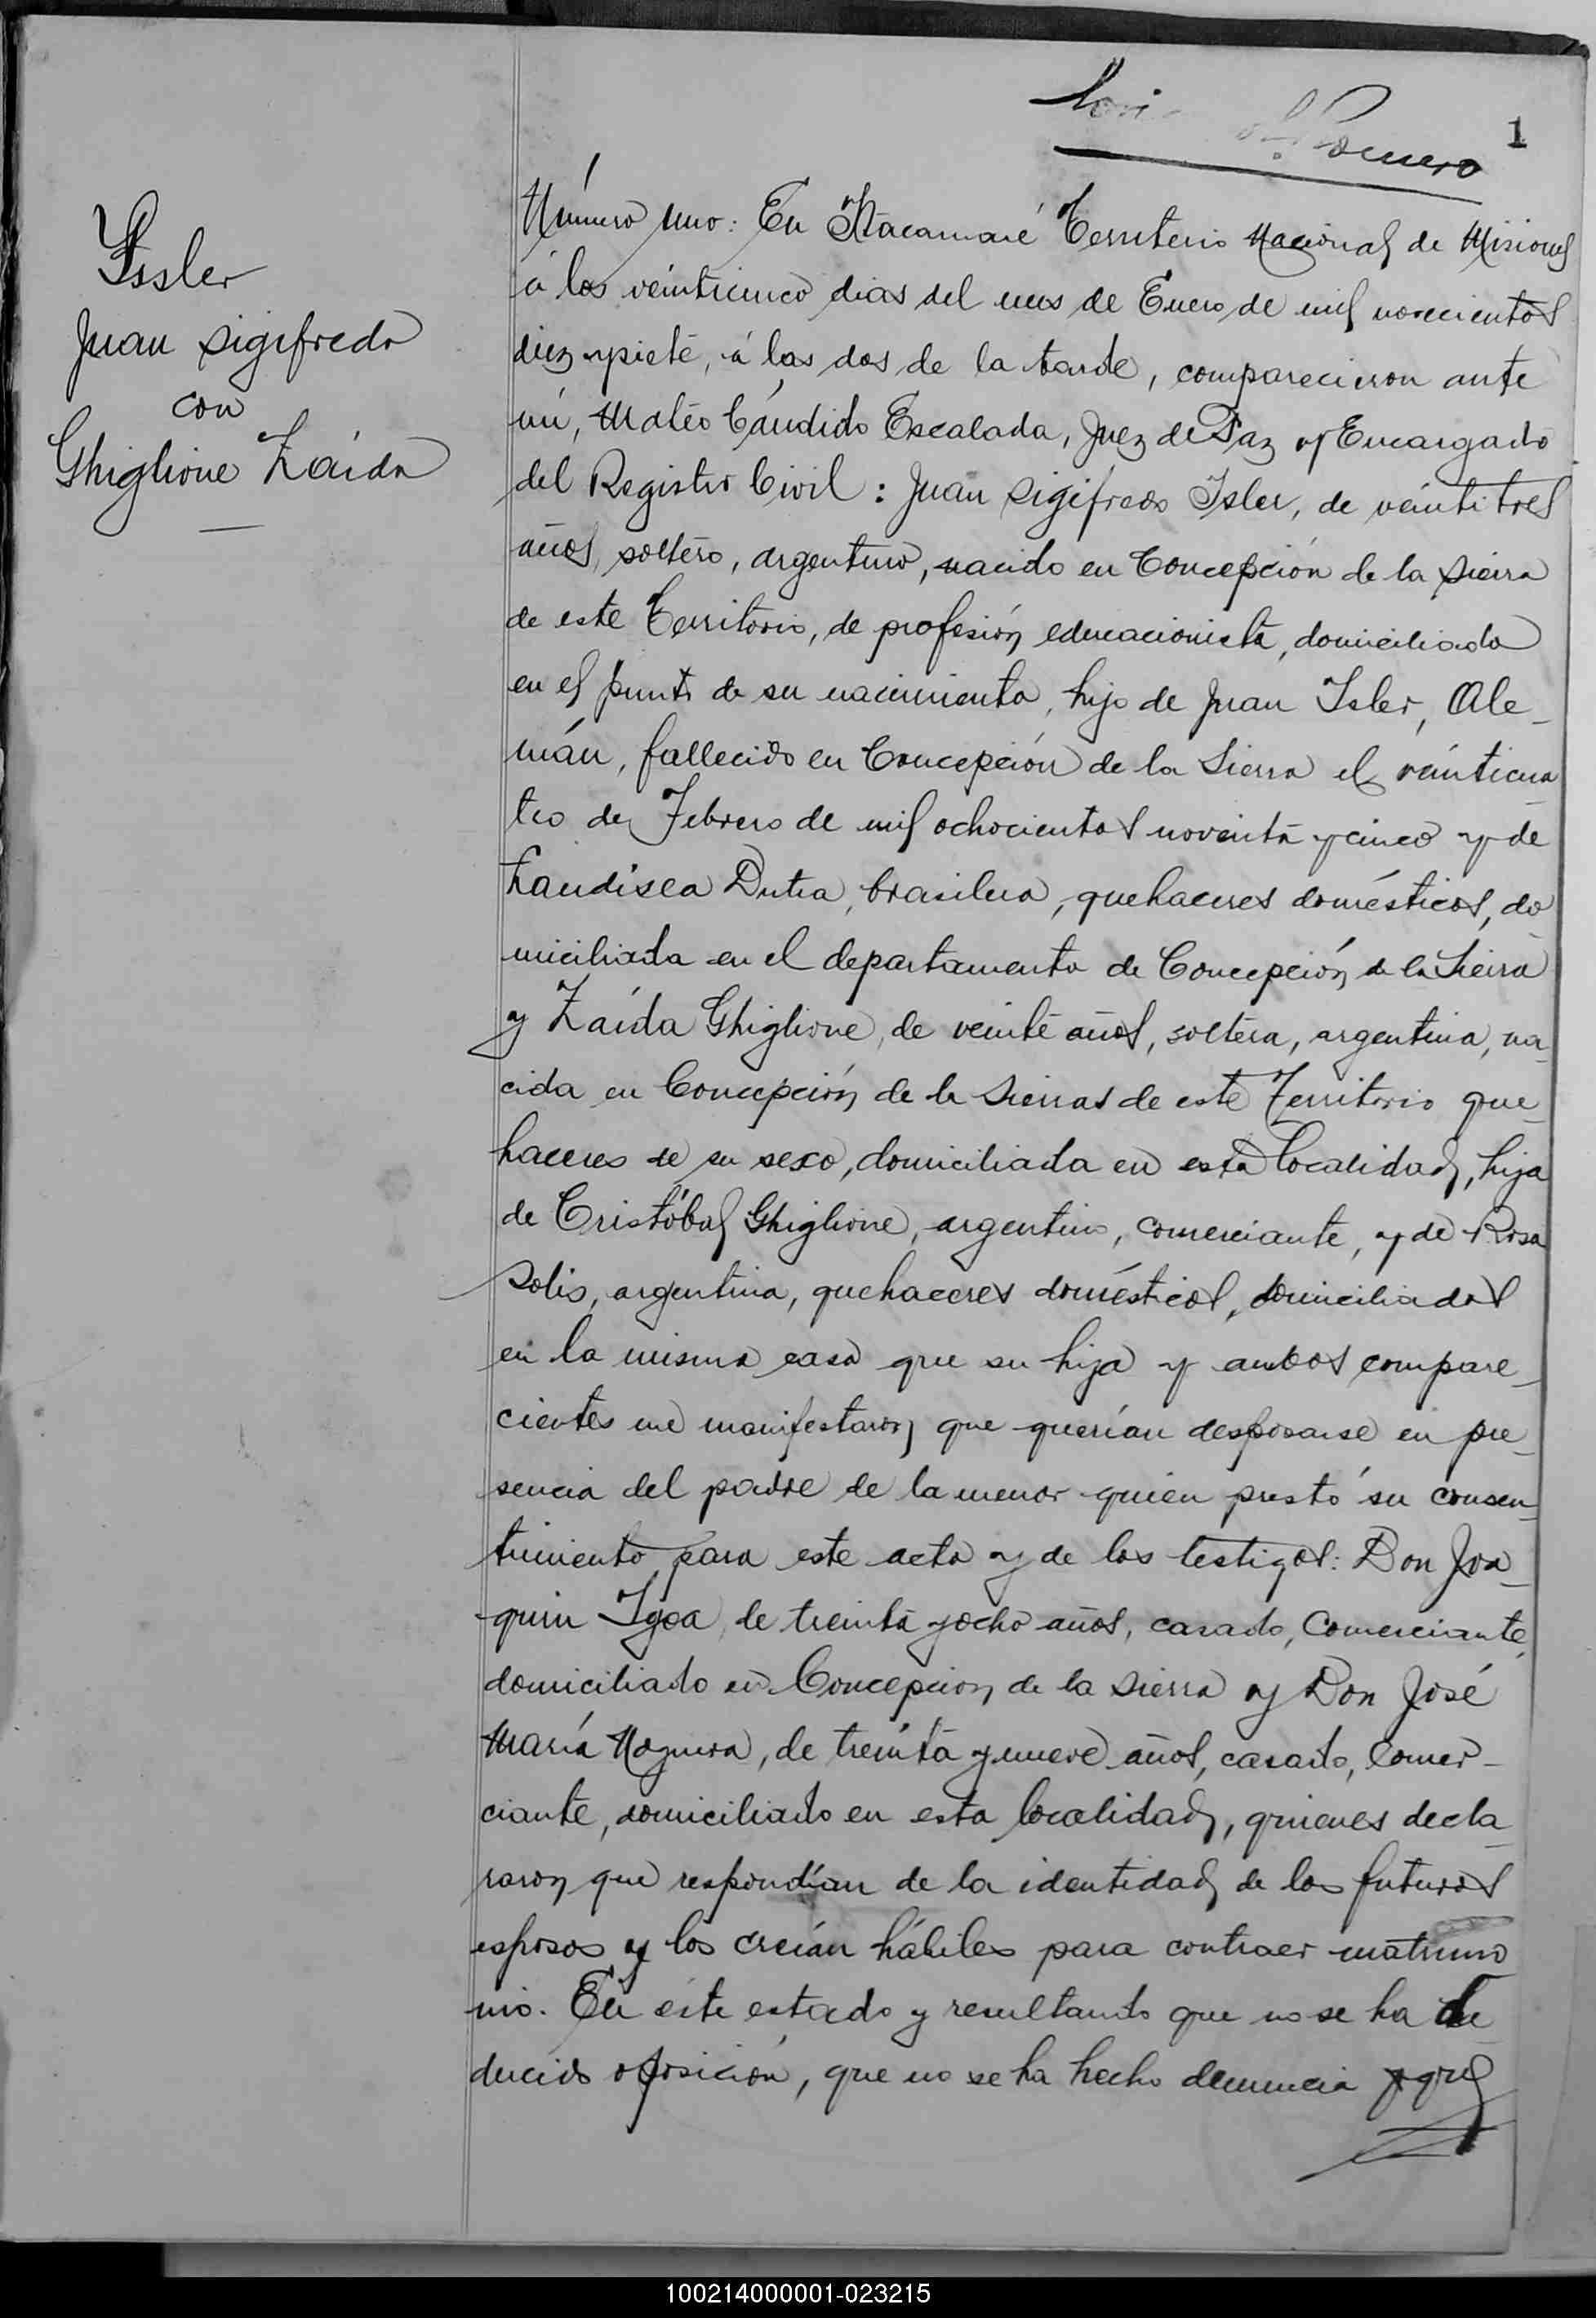 1
Issler
Juan Sigifredo
con
Ghiglione Zaída
Número uno: En Itacaruaré Territorio Nacional de Misiones
á los veinticinco dias del mes de Enero de mil novecientos
diez y siete, á las dos de la tarde, comparecieron ante
mí, Mateo Cándido Escalada, Juez de Paz y Encargado
del Registro Civil: Juan Sigifredo Isler, de veintitres
años, soltero, argentino, nacido en Concepción de la Sierra
de este Territorio, de profesión educacionista, domiciliado
en el punto de su nacimiento, hijo de Juan Isler, Ale-
mán, fallecido en Concepción de la Sierra el veinticua
tro de Febrero de mil ochocientos noventa y cinco y de
Dutra, brasilera, quehaceres domésticos, do
miciliada en el departamento de Concepción de la Sierra
y Zaída Ghiglione, de veinte años, soltera, argentina, na
cida en Concepción de la Sierras de este Territorio que
haceres de su sexo, domiciliada en esta localidad, hija
de Cristóbal Ghiglione, argentino, comerciante, y de Rosa
Solis, argentina, quehaceres domésticos, domiciliados
en la misma casa que su hija y ambos compare-
cientes me manifestaron que querían desposarse en pre-
sencia del padre de la menor quien prestó su consen-
timiento para este acto y de los testigos: Don Joa-
quin Igoa, de treinta y ocho años, casado, Comerciante,
domiciliado en Concepcion de la Sierra y Don José
María Noguera, de treinta y nueve años, casado, Comer-
ciante, domiciliado en esta localidad, quienes decla
raron que respondían de la identidad de los futuros
esposos y los creían hábiles para contraer matrimo
nio. En éste estado y resultando que no se ha de
ducido oposición, que no se ha hecho denuncia y que
100214000001-023215